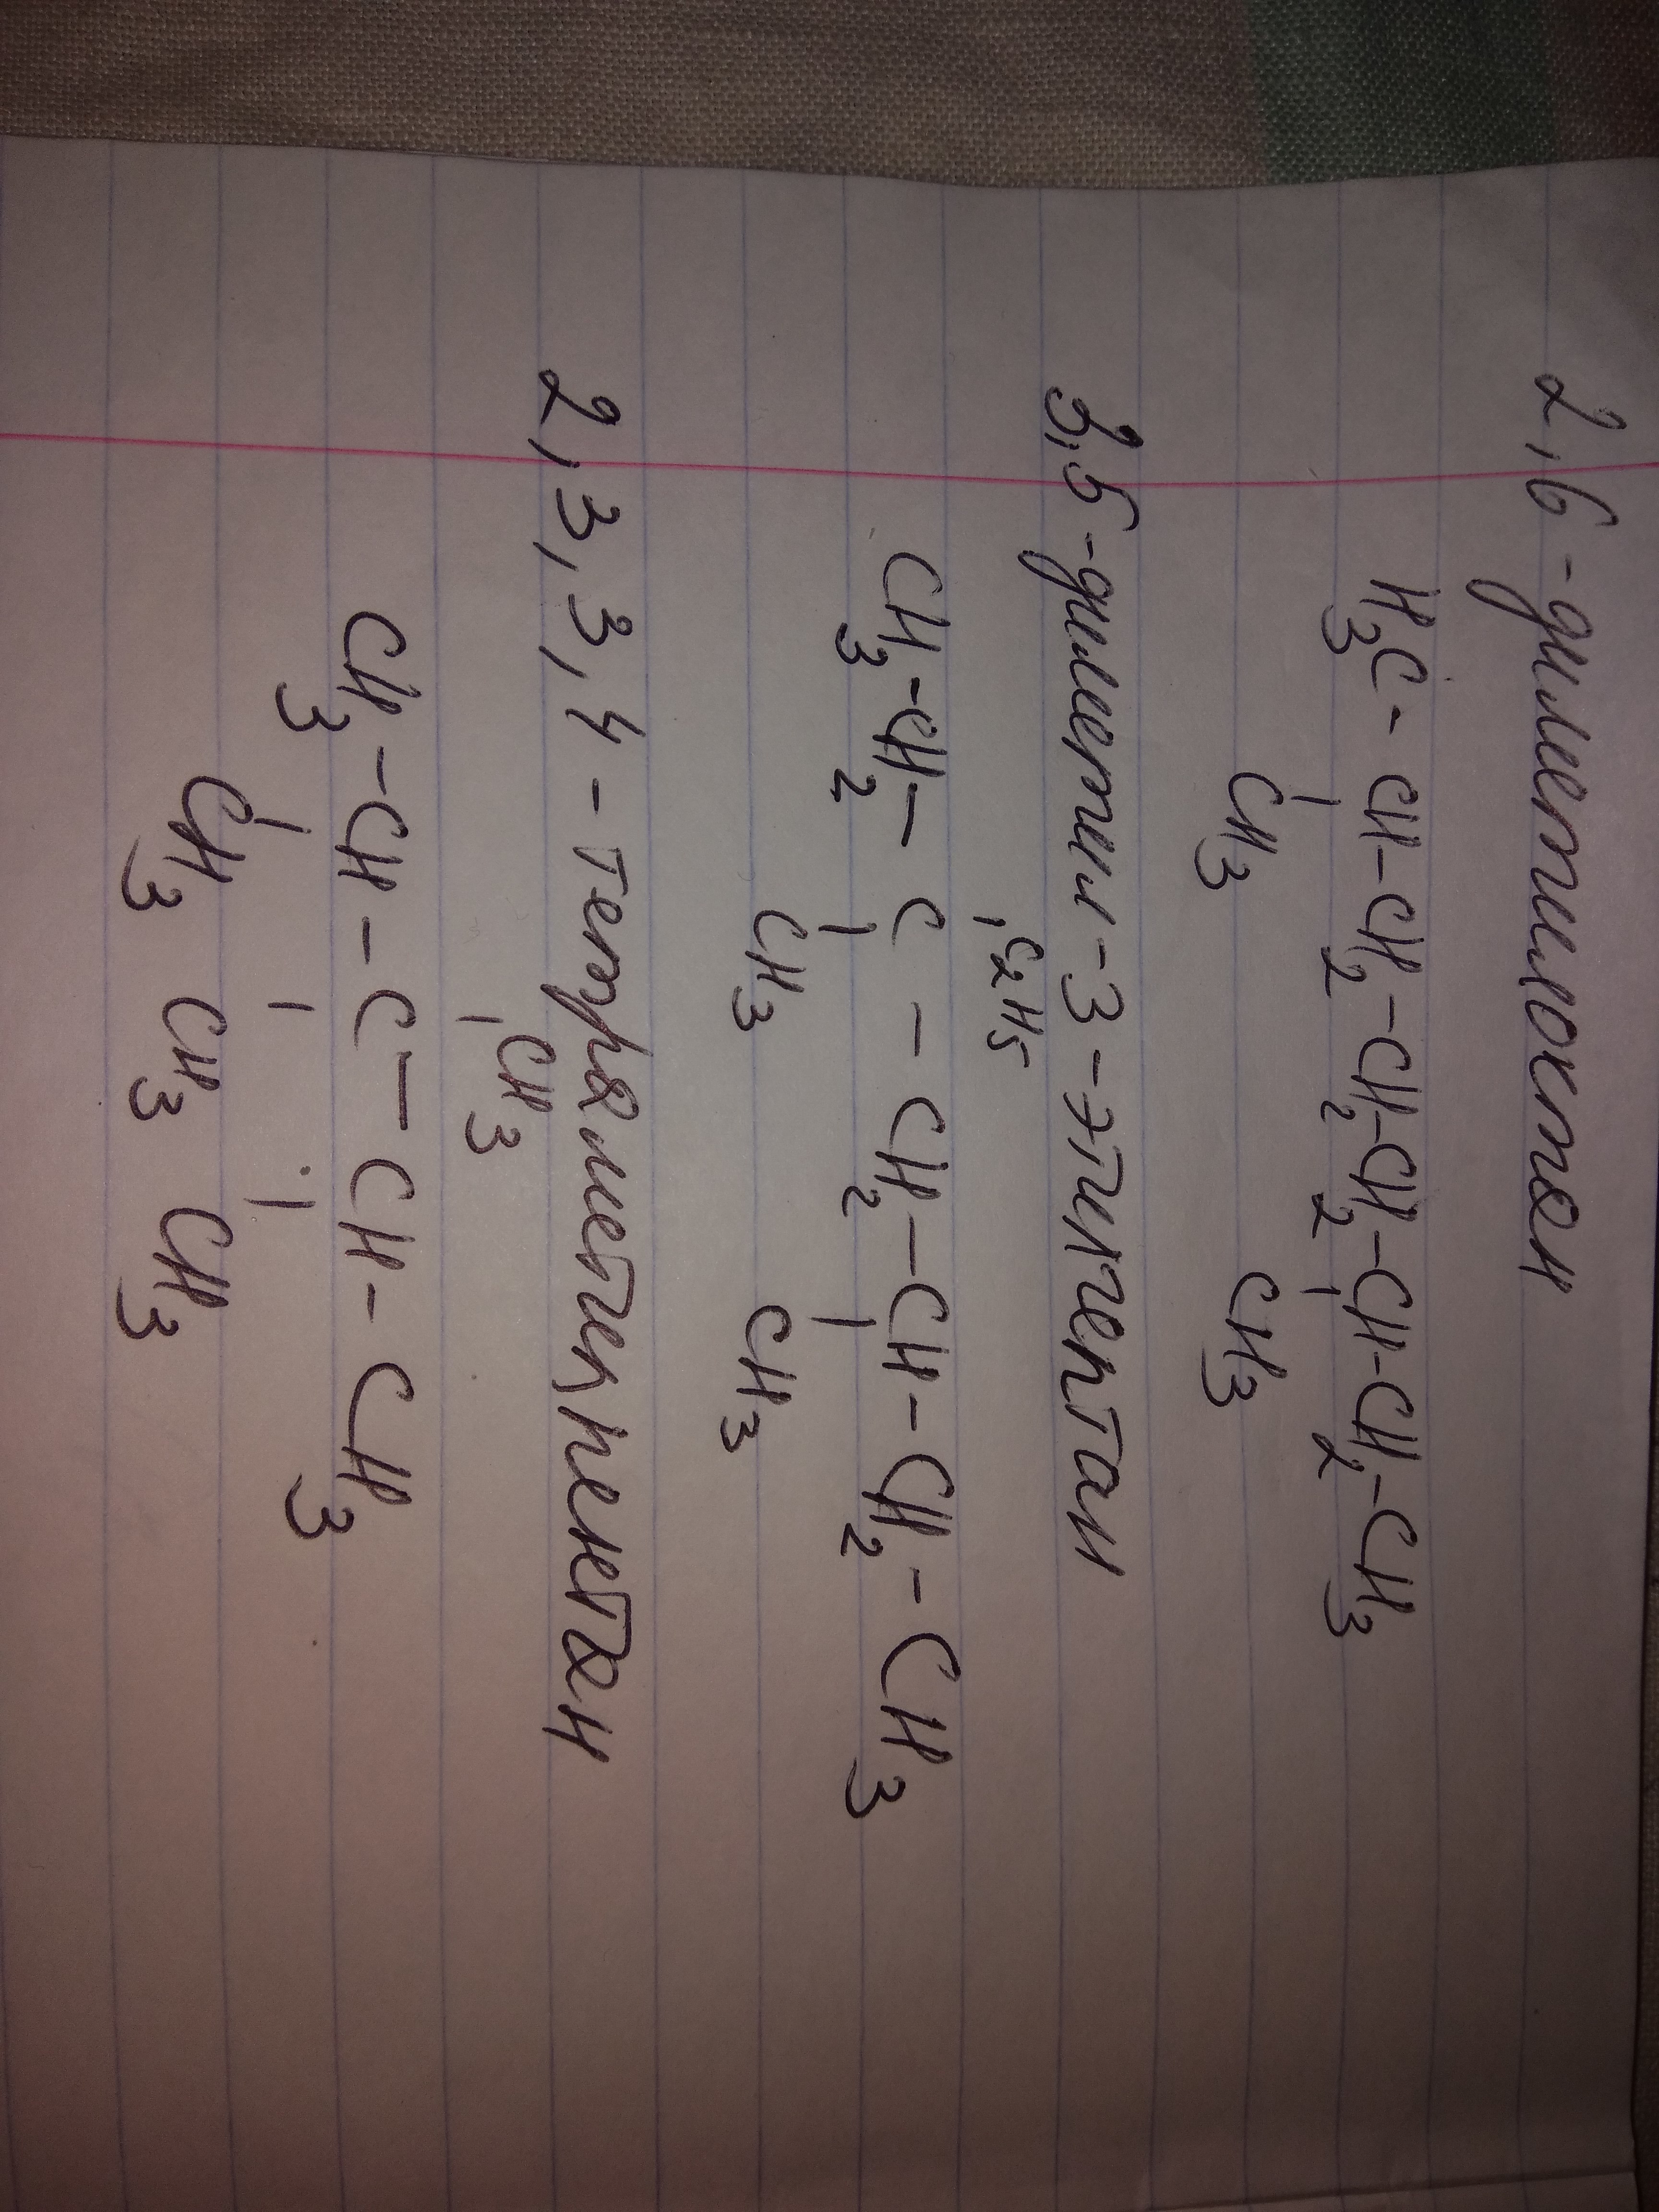 2,6-диметилоктан
H₃C-CH-CH₂-CH₂-CH₂-CH-CH₂-CH₃
CH₃ CH₃
3,5-диметил-3-этилгептан
C₂H₅
CH₃-CH₂-C-CH₂-CH-CH₂-CH₃
CH₃ CH₃
2,3,3,4-тетраметилпентан
CH₃
CH₃-CH-C-CH-CH₃
CH₃ CH₃ CH₃